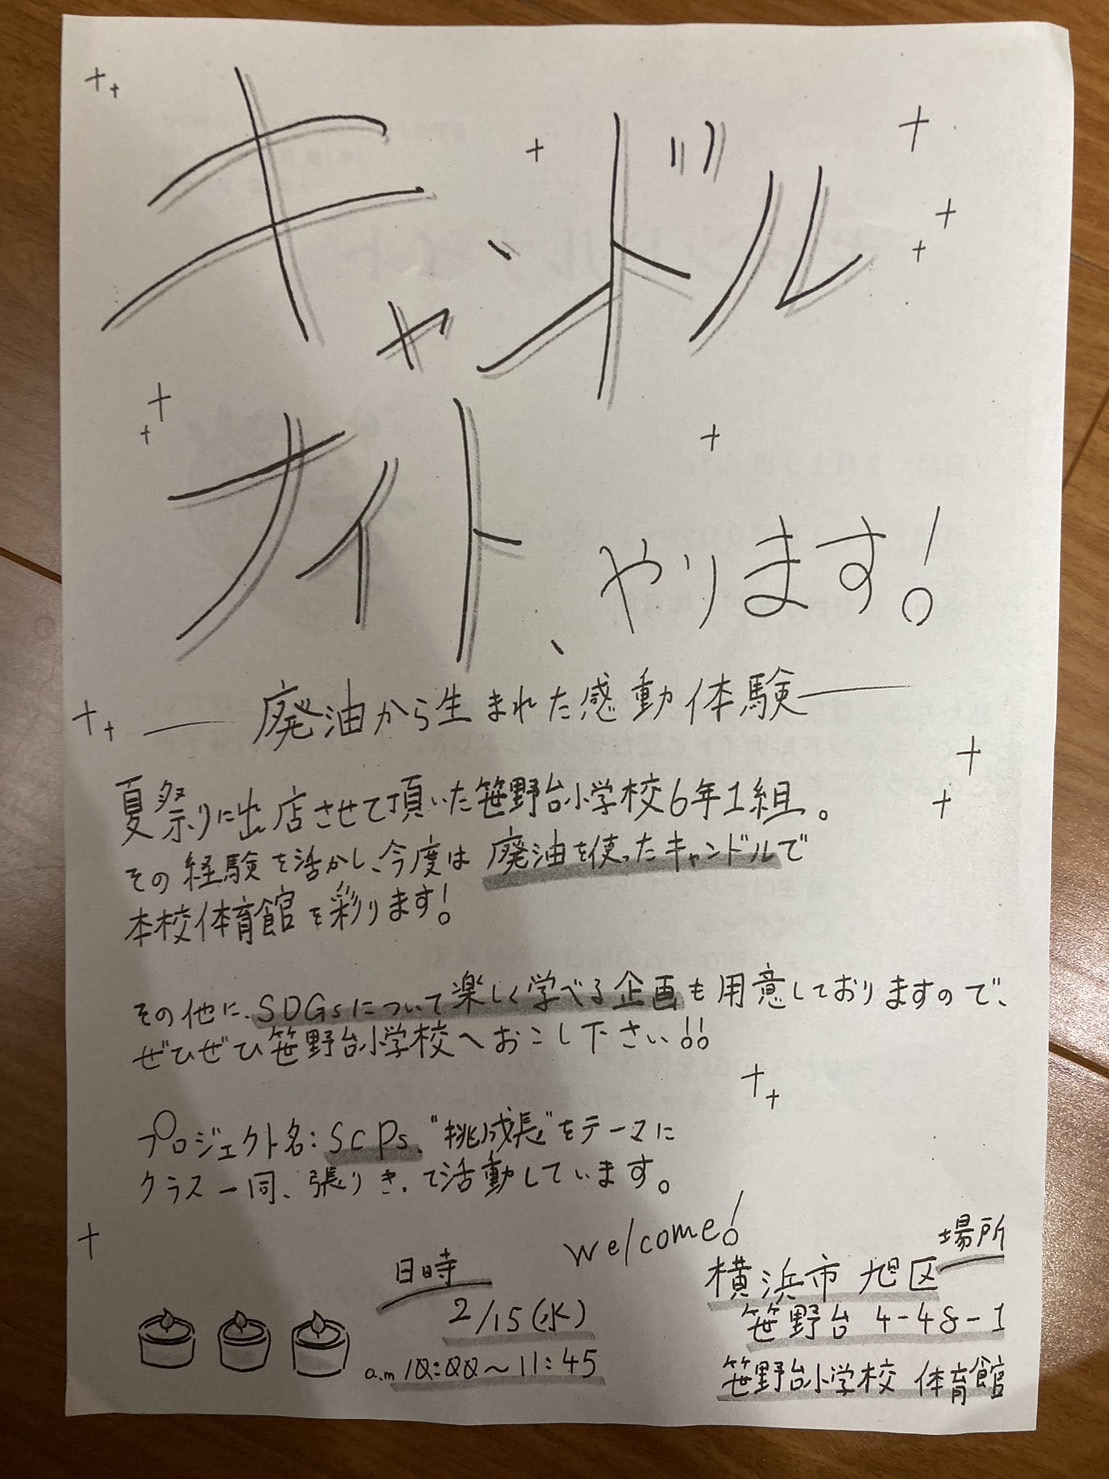 キャンドル
ナイト、やります!
廃油から生まれた感動体験
夏祭りに出店させて頂いた笹野台小学校6年1組。
その経験を活かし、今度は廃油を使ったキャンドルで
本校体育館を彩ります!
その他に、SDGsについて楽しく学べる企画も用意しておりますので、
ぜひぜひ笹野台小学校へおこし下さい!!
プロジェクト名:SCPs、"挑成長"をテーマに
クラス一同、張りきって活動しています。
welcome!
日時
2/15(水)
a.m 10:00〜11:45
場所
横浜市 旭区
笹野台 4-48-1
笹野台小学校 体育館